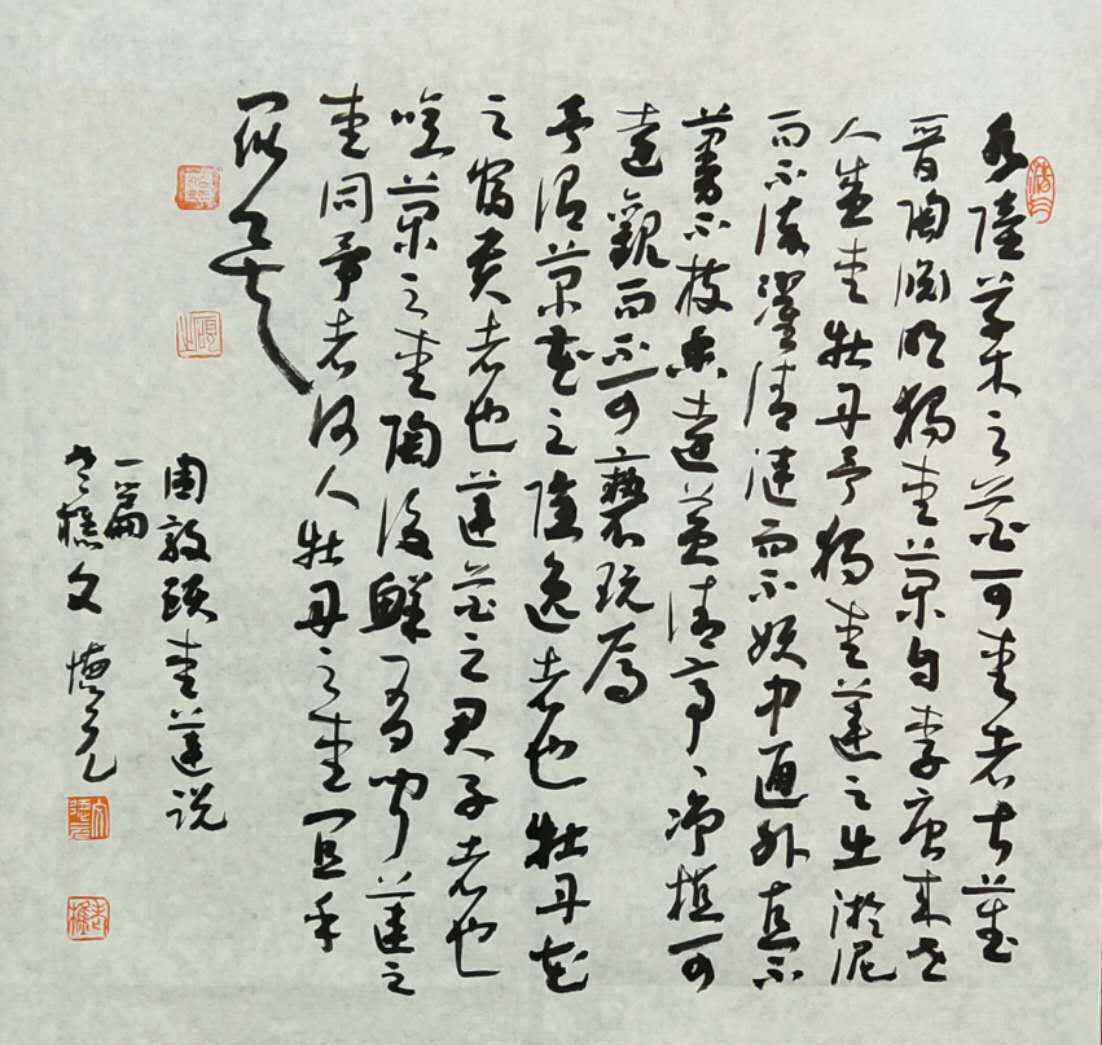 水陆草木之花可爱者甚蕃
晋陶渊明独爱菊自李唐来世
人盛爱牡丹予独爱莲之出淤泥
而不染濯清涟而不妖中通外直不
蔓不枝香远益清亭亭净植可
远观而不可亵玩焉
予谓菊花之隐逸者也牡丹花
之富贵者也莲花之君子者也
噫菊之爱陶后鲜有闻莲之
爱同予者何人牡丹之爱宜乎
众矣
周敦颐爱莲说
一篇
老樵文德元